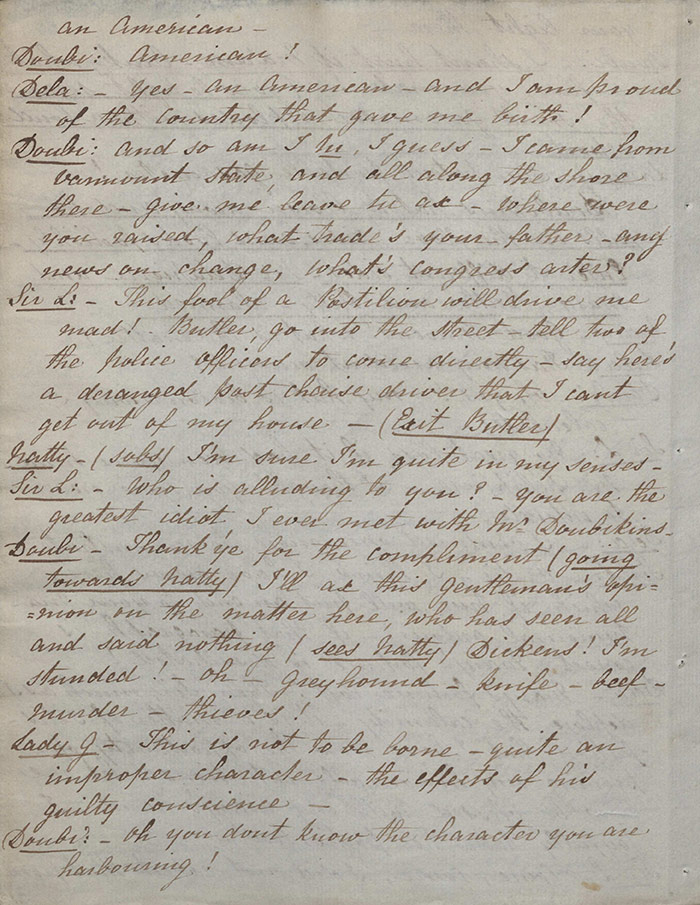 an American -
Doubi: American!
Dela: - Yes - an American - and I am proud
of the Country that gave me birth!
Doubi: and so am I tu, I guess - I came from
varmount state, and all along the shore
there - give me leave tu ax - where were
you raised, what trade's your father - any
news on change, what's congress arter?
Sir L: - This fool of a Postilion will drive me
mad! Butler, go into the street - tell two of
the police officers to come directly - say here's
a deranged post chaise driver that I cant
get out of my house - (Exit Butler)
Natty - (sobs) I'm sure I'm quite in my senses -
Sir L: - Who is alluding to you? - you are the
greatest idiot I ever met with Mr Doubikins -
Doubi - Thank'ye for the compliment (going
towards Natty) I'll ax this gentleman's opi-
=nion on the matter here, who has seen all
and said nothing (sees Natty) Dickens! I'm
stunded! - oh - Greyhound - knife - beef -
murder - thieves!
Lady G - This is not to be borne - quite an
improper character - the effects of his
guilty conscience -
Doubi: - oh you dont know the character you are
harbouring!